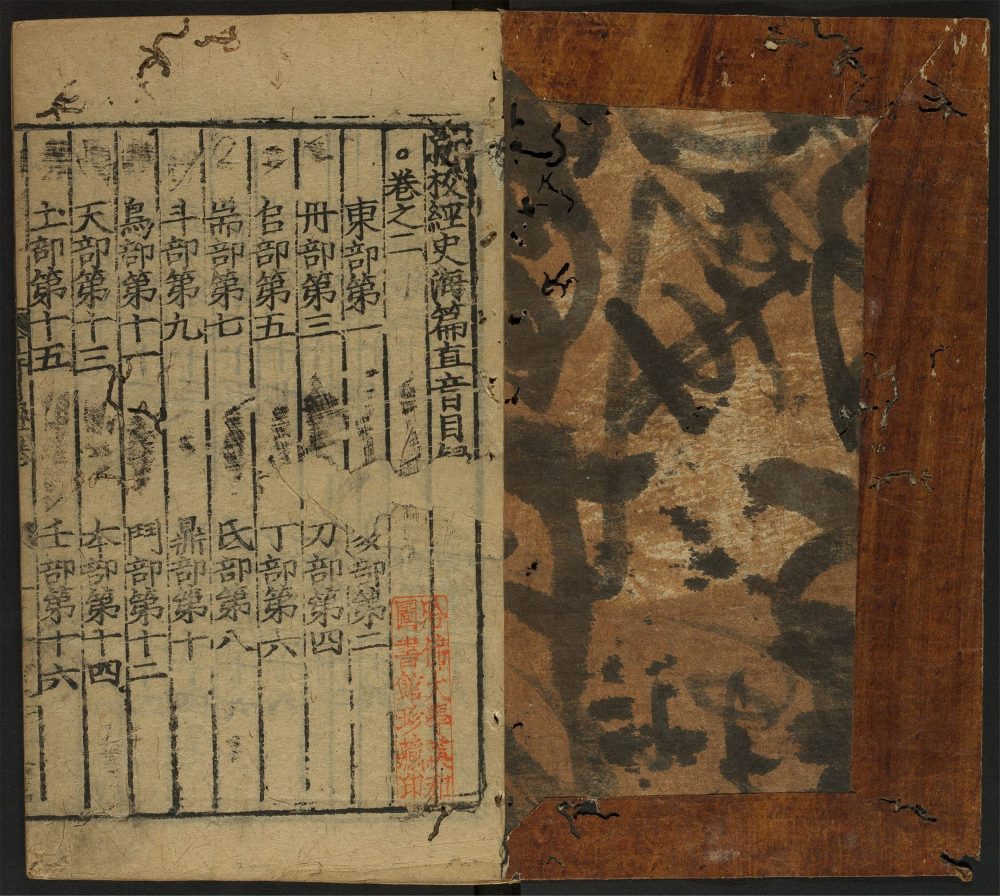 校經史海篇直音目
○卷之二
東部第一 部第二
丹部第三 刀部第四
𠂤部第五 丁部第六
耑部第七 氐部第八
斗部第九 鼎部第十
鳥部第十一 鬥部第十二
天部第十三 本部第十四
土部第十五 壬部第十六
哈佛大學漢和
圖書館珍藏印